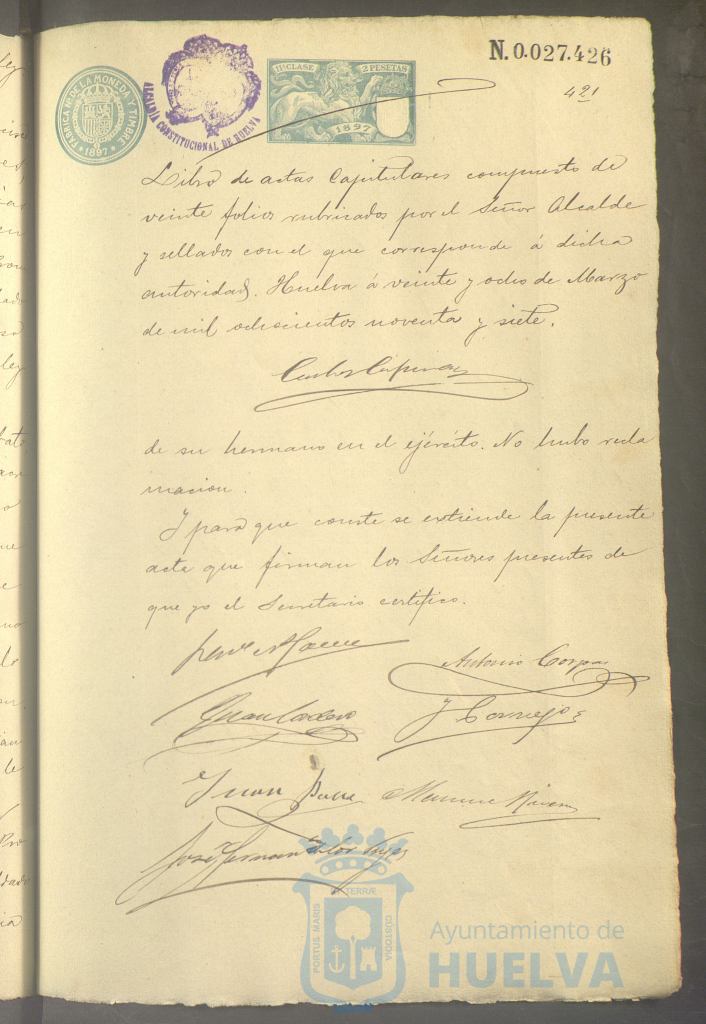 N. 0.027.426
421
FABRICA NAL. DE LA MONEDA Y TIMBRE
1897
ALCALDIA CONSTITUCIONAL DE HUELVA
11ª CLASE
2 PESETAS
1897
Libro de actas Capitulares compuesto de
veinte folios rubricados por el Señor Alcalde
y sellados con el que corresponde á dicha
autoridad. Huelva á veinte y ocho de Marzo
de mil ochocientos noventa y siete.
de su hermano en el ejército. No hubo recla
macion.
Y para que conste se extiende la presente
acta que firman los Señores presentes de
que yo el Secretario certifico.
Antonio Corpas
J Cornejo
Juan
Manuel
José Hernandez
PORTUS MARIS
ET TERRÆ
CUSTODIA
Ayuntamiento de
HUELVA